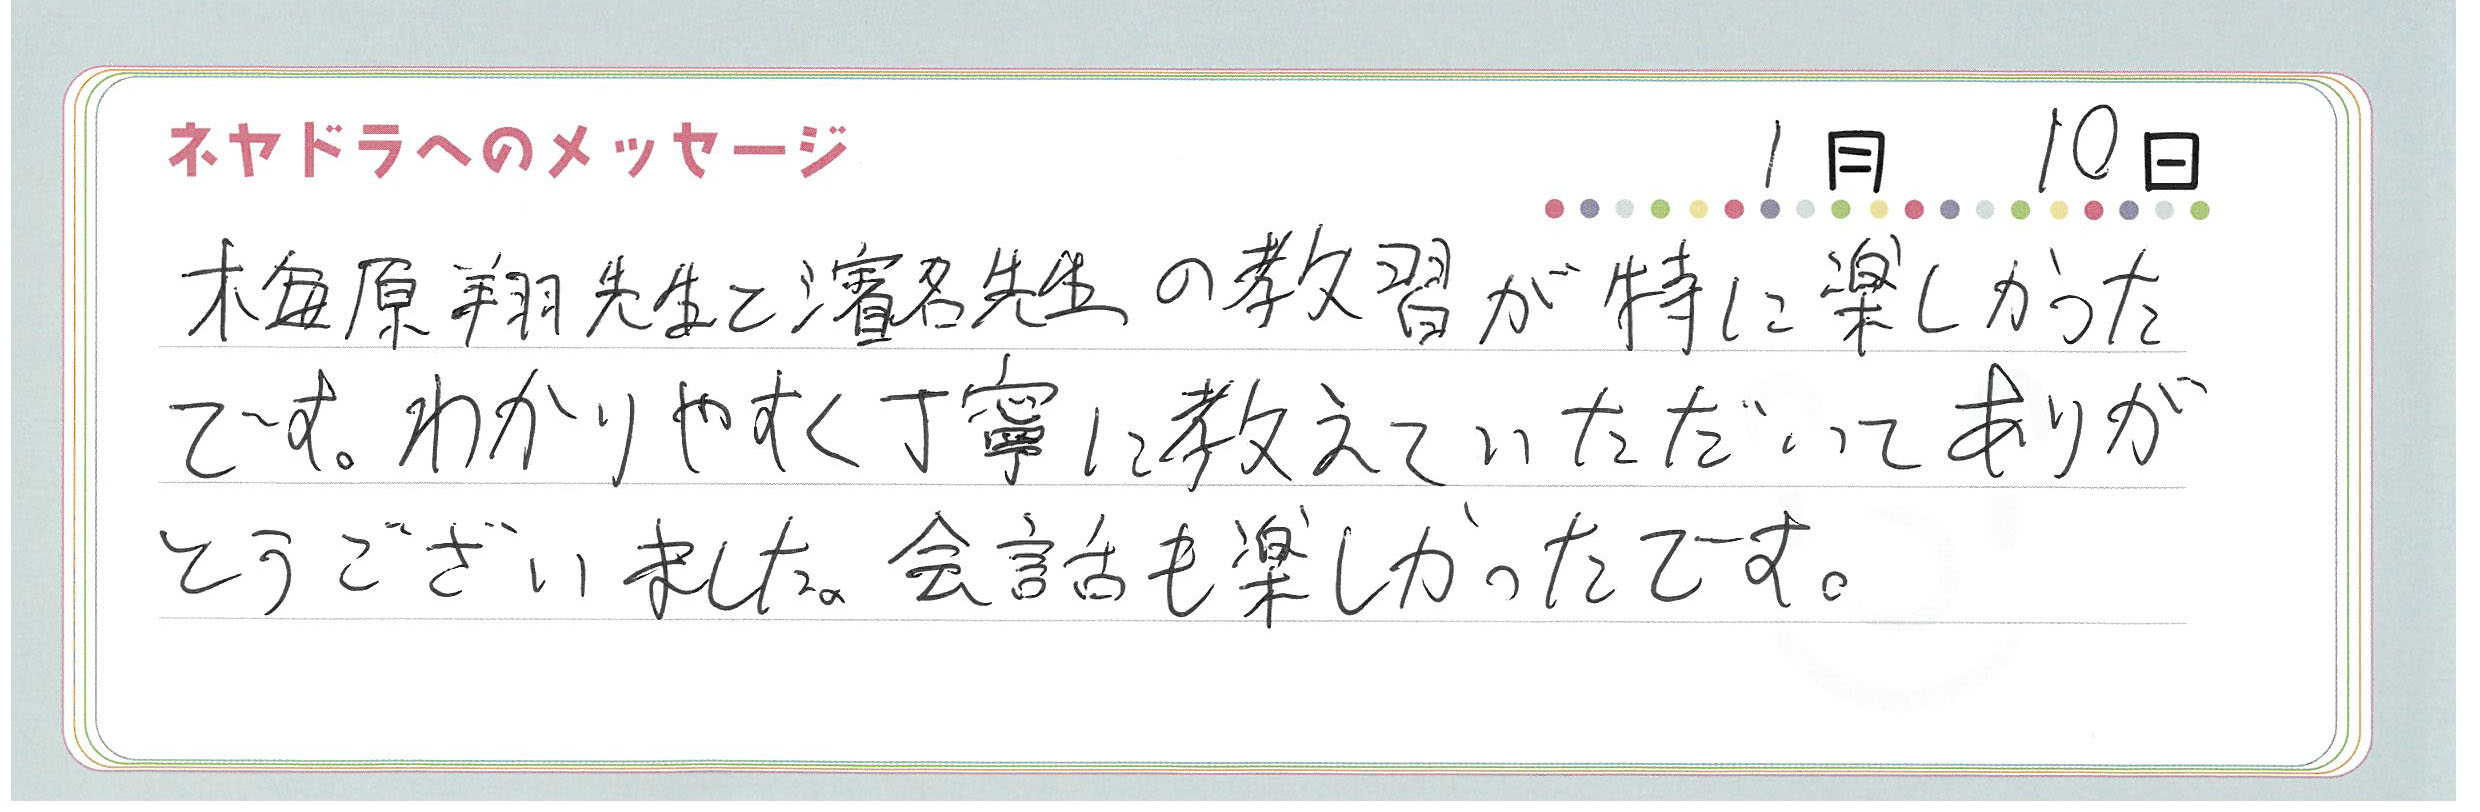 ネヤドラへのメッセージ
1月 10日
梅原翔先生と濱名先生の教習が特に楽しかった
です。わかりやすく丁寧に教えていただいてありが
とうございました。会話も楽しかったです。